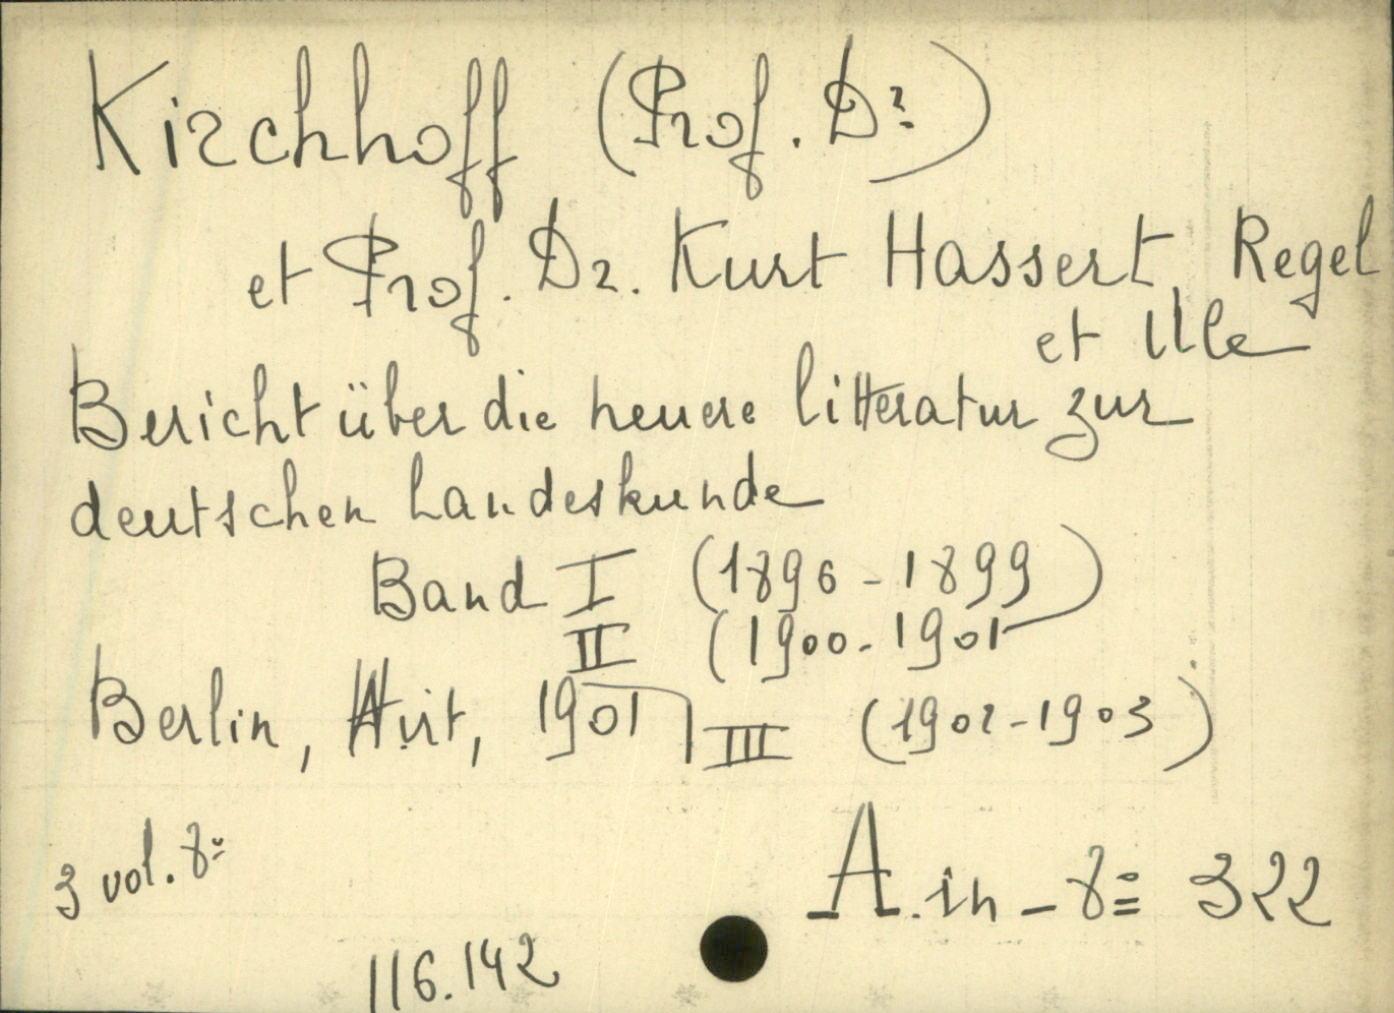 Kirchhoff (Prof. Dr)
et Prof. Dr. Kurt Hassert, Regel
et Ule
Bericht über die neuere litteratur zur
deutschen Landeskunde
Band I (1896-1899)
II (1900-1901)
Berlin, Hirt, 1901 III (1902-1903)
3 vol. 8º
A. in-8º 322
116.142